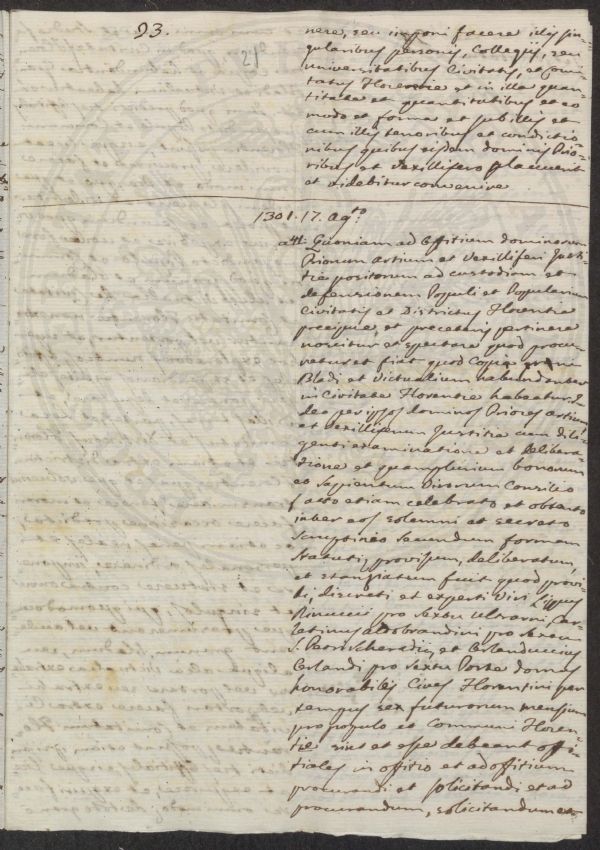 93.
21
nere, seu imponi facere illis sin-
gularibus personis, Collegijs, seu
universitatibus Civitatis, et Comi-
tatus Florentie et in illa quan-
titate et quantitatibus et eo
modo et forma et sub illis et
cum illis tenoribus et conditio-
nibus quibus eisdem dominis Prio-
ribus et Vexillifero placuerit
et videbitur convenire
1301. 17. Agto
Quoniam ad Offitium dominorum
Priorum artium et Vexilliferi Justi-
tie positorum ad custodiam et
defensionem Populi et Popularium
Civitatis et Districtus Florentie
precipue, et precateris pertinere
noscitur et spectare quod procu-
retur et fiat quod Copia
Bladi et Victualium habundanter
in Civitate Florentie habeatur I-
deo per ipsos dominos Priores artium
et Vexilliferum Justitie cum dili-
genti examinatione et Delibera-
tione et quamplurium bonorum
et sapientum Virorum Consilio
facto etiam celebrato et obtento
inter eos solemni et secreto
scruptineo secundum formam
Statuti, provisum, deliberatum,
et stantiatum fuit quod provi-
di, discreti et experti Viri Lippus
Rinuccii pro Sextu Ultrarni,
aldobrandini pro Sextu
S. Petri Scheradii, et Orlanduccius
Orlandi pro Sextu Porte domus
honorabiles Cives Florentini per
tempus sex futurorum mensium
pro populo et Communi Floren-
tie sint et esse debeant offi-
tiales in offitio et ad offitium
procurandi et solicitandi et ad
procurandum, solicitandum et